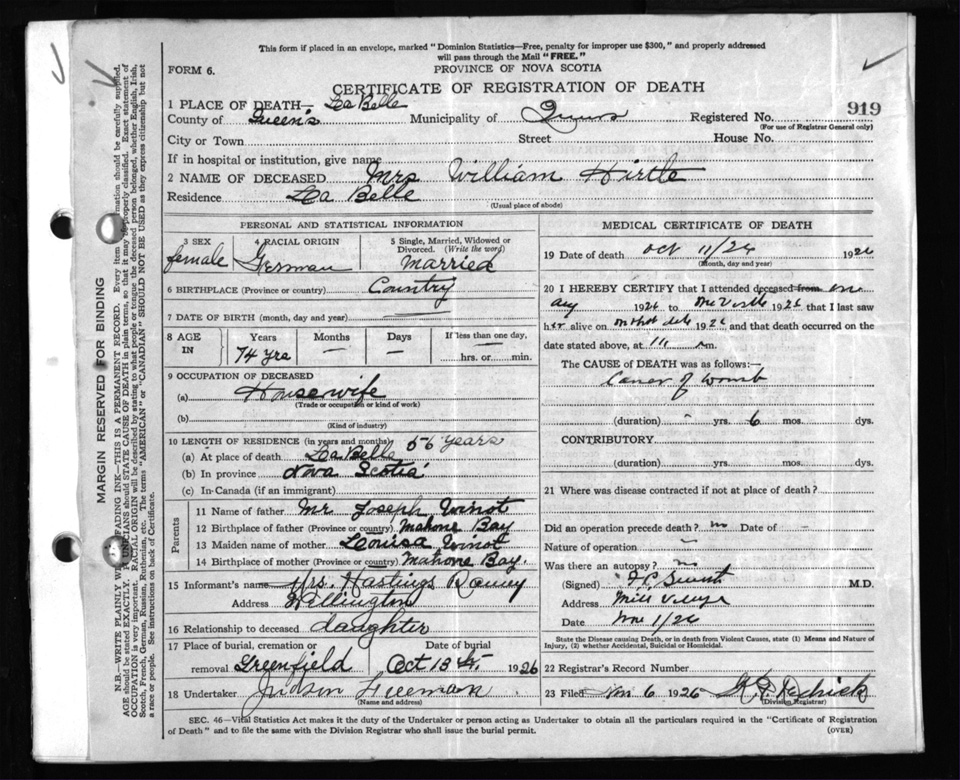 This form if placed in an envelope, marked "Dominion Statistics—Free, penalty for improper use $300," and properly addressed
will pass through the Mail "FREE."
FORM 6.
PROVINCE OF NOVA SCOTIA
CERTIFICATE OF REGISTRATION OF DEATH
919
1 PLACE OF DEATH— La Belle
County of Queens Municipality of Queens Registered No.
(For use of Registrar General only)
City or Town Street House No.
If in hospital or institution, give name
2 NAME OF DECEASED Mrs William Hirtle
Residence La Belle
(Usual place of abode)
PERSONAL AND STATISTICAL INFORMATION
3 SEX 4 RACIAL ORIGIN 5 Single, Married, Widowed or
Divorced. (Write the word)
female German Married
6 BIRTHPLACE (Province or country) Country
7 DATE OF BIRTH (month, day and year)
8 AGE IN Years Months Days If less than one day,
74 yrs — — hrs. or min.
9 OCCUPATION OF DECEASED
(a) Housewife
(Trade or occupation or kind of work)
(b)
(Kind of industry)
10 LENGTH OF RESIDENCE (in years and months) 56 years
(a) At place of death La Belle
(b) In province Nova Scotia
(c) In Canada (if an immigrant)
Parents
11 Name of father Mr Joseph Winot
12 Birthplace of father (Province or country) Mahone Bay
13 Maiden name of mother Louisa Winot
14 Birthplace of mother (Province or country) Mahone Bay
15 Informant's name Mrs. Hastings
Address Wellington
16 Relationship to deceased daughter
17 Place of burial, cremation or Date of burial
removal Greenfield Oct 13 1926
18 Undertaker Judson Freeman
(Name and address)
MEDICAL CERTIFICATE OF DEATH
19 Date of death Oct 11/26 1926
(Month, day and year)
20 I HEREBY CERTIFY that I attended deceased from on
Aug 1926 to 1926 that I last saw
her alive on 192 and that death occurred on
date stated above, at 11 m.
The CAUSE of DEATH was as follows:—
Cancer of womb
(duration) yrs. 6 mos. dys.
CONTRIBUTORY
(duration) yrs. mos. dys.
21 Where was disease contracted if not at place of death?
Did an operation precede death? no Date of —
Nature of operation
Was there an autopsy? no
(Signed) M.D.
Address Mill Village
Date Nov 1/26
State the Disease causing Death, or in death from Violent Causes, state (1) Means and Nature of
Injury, (2) whether Accidental, Suicidal or Homicidal.
22 Registrar's Record Number
23 Filed Nov 6 1926
(Division Registrar)
SEC. 46—Vital Statistics Act makes it the duty of the Undertaker or person acting as Undertaker to obtain all the particulars required in the "Certificate of Registration
of Death" and to file the same with the Division Registrar who shall issue the burial permit. (OVER)
MARGIN RESERVED FOR BINDING
N.B.—WRITE PLAINLY WITH UNFADING INK—THIS IS A PERMANENT RECORD. Every item of information should be carefully supplied.
AGE should be stated EXACTLY. PHYSICIANS should STATE CAUSE OF DEATH in plain terms, so that it may be properly classified. Exact statement of
OCCUPATION is very important. RACIAL ORIGIN will be described by stating to what people or tongue the deceased person belonged, whether English, Irish,
Scotch, French, German, Russian, Ruthenian, etc. The terms "AMERICAN" or "CANADIAN" SHOULD NOT BE USED as they express citizenship but not
a race or people. See instructions on back of Certificate.